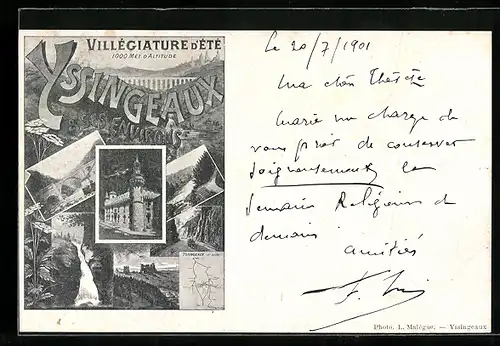 VILLÉGIATURE D'ÉTÉ
1000 MET. D'ALTITUDE
YSSINGEAUX
ENVIRONS
Le 20/7/1901
Ma chère Thérèse
Marie me charge de
vous prier de conserver
soigneusement la
Semaine Religieuse de
demain
amitiés
YSSINGEAUX
Photo. L. Malègue. — Yssingeaux